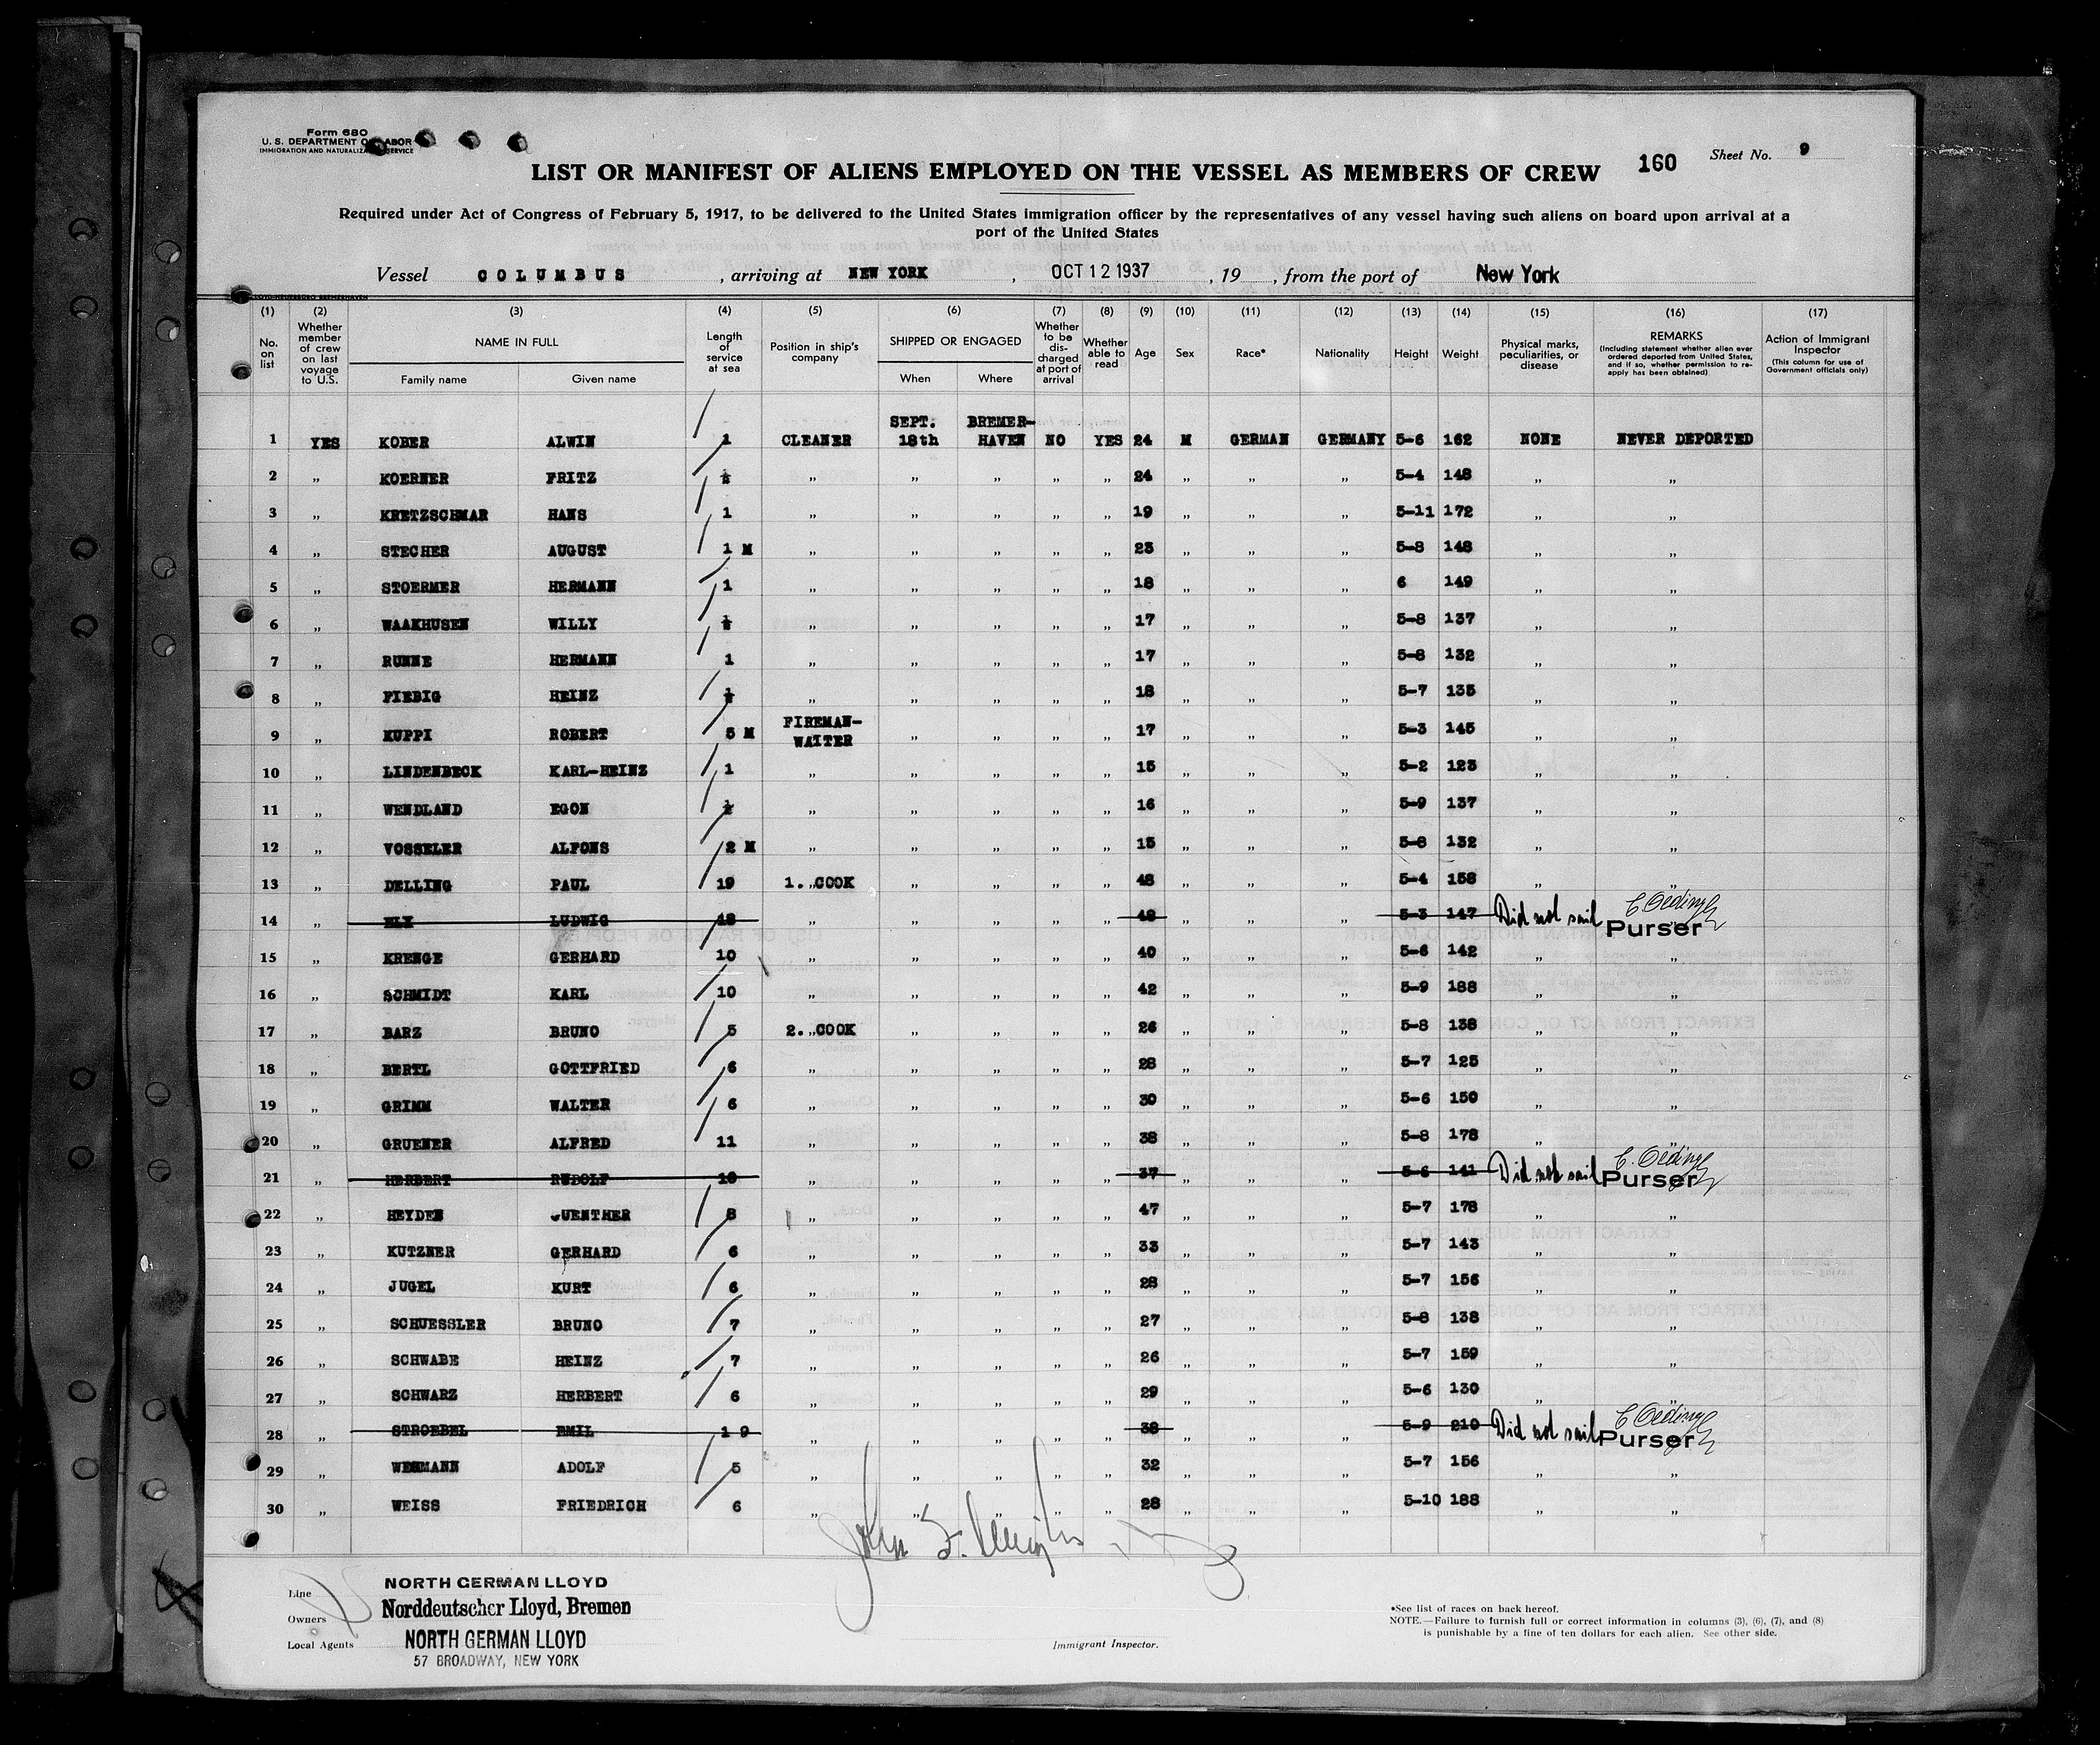 Form 680
U. S. DEPARTMENT OF LABOR
IMMIGRATION AND NATURALIZATION SERVICE
LIST OR MANIFEST OF ALIENS EMPLOYED ON THE VESSEL AS MEMBERS OF CREW 160 Sheet No. 9
Required under Act of Congress of February 5, 1917, to be delivered to the United States immigration officer by the representatives of any vessel having such aliens on board upon arrival at a
port of the United States
Vessel COLUMBUS , arriving at NEW YORK , OCT 12 1937 , 19 , from the port of New York
(1) (2) (3) (4) (5) (6) (7) (8) (9) (10) (11) (12) (13) (14) (15) (16) (17)
No. on list Whether member of crew on last voyage to U.S. NAME IN FULL Family name Given name Length of service at sea Position in ship's company SHIPPED OR ENGAGED When Where Whether to be discharged at port of arrival Whether able to read Age Sex Race* Nationality Height Weight Physical marks, peculiarities, or disease REMARKS (Including statement whether alien ever ordered deported from United States, and if so, whether permission to reapply has been obtained) Action of Immigrant Inspector (This column for use of Government officials only)
1 YES KOBER ALWIN 1 CLEANER SEPT. 18th BREMER-HAVEN NO YES 24 M GERMAN GERMANY 5-6 162 NONE NEVER DEPORTED
2 " KOERNER FRITZ ½ " " " " " 24 " " " 5-4 148 " "
3 " KRETZSCHMAR HANS 1 " " " " " 19 " " " 5-11 172 " "
4 " STECHER AUGUST 1 M " " " " " 23 " " " 5-8 148 " "
5 " STOERMER HERMANN 1 " " " " " 18 " " " 6 149 " "
6 " WAAKHUSEN WILLY ½ " " " " " 17 " " " 5-8 137 " "
7 " RUNNE HERMANN 1 " " " " " 17 " " " 5-8 132 " "
8 " FIEBIG HEINZ ½ " " " " " 18 " " " 5-7 135 " "
9 " KUPPI ROBERT 5 M FIREMAN-WAITER " " " " 17 " " " 5-3 145 " "
10 " LINDENBECK KARL-HEINZ 1 " " " " " 15 " " " 5-2 123 " "
11 " WENDLAND EGON ½ " " " " " 16 " " " 5-9 137 " "
12 " VOSSELER ALFONS 2 M " " " " " 15 " " " 5-8 132 " "
13 " DELLING PAUL 19 1. " COOK " " " " 48 " " " 5-4 158 " "
14 " ELY LUDWIG 18 " " " " " 49 " " " 5-3 147 Did not sail C Oeding Purser
15 " KRENGE GERHARD 10 " " " " " 40 " " " 5-6 142 " "
16 " SCHMIDT KARL 10 " " " " " 42 " " " 5-9 188 " "
17 " BARZ BRUNO 5 2. " COOK " " " " 26 " " " 5-8 138 " "
18 " BERTL GOTTFRIED 6 " " " " " 28 " " " 5-7 125 " "
19 " GRIMM WALTER 6 " " " " " 30 " " " 5-6 150 " "
20 " GRUENER ALFRED 11 " " " " " 38 " " " 5-8 178 " "
21 " HERBERT RUDOLF 10 " " " " " 37 " " " 5-6 141 Did not sail C. Oeding Purser
22 " HEYDEN GUENTHER 8 " " " " " 47 " " " 5-7 178 " "
23 " KUTZNER GERHARD 6 " " " " " 33 " " " 5-7 143 " "
24 " JUGEL KURT 6 " " " " " 28 " " " 5-7 156 " "
25 " SCHUESSLER BRUNO 7 " " " " " 27 " " " 5-8 138 " "
26 " SCHWABE HEINZ 7 " " " " " 26 " " " 5-7 159 " "
27 " SCHWARZ HERBERT 6 " " " " " 29 " " " 5-6 130 " "
28 " STROEBEL EMIL 19 " " " " " 38 " " " 5-9 210 Did not sail C Oeding Purser
29 " WEHMANN ADOLF 5 " " " " " 32 " " " 5-7 156 " "
30 " WEISS FRIEDRICH 6 " " " " " 28 " " " 5-10 188 " "
Line NORTH GERMAN LLOYD
Owners Norddeutscher Lloyd, Bremen
Local Agents NORTH GERMAN LLOYD
57 BROADWAY, NEW YORK
John F.
Immigrant Inspector.
*See list of races on back hereof.
NOTE.—Failure to furnish full or correct information in columns (3), (6), (7), and (8)
is punishable by a fine of ten dollars for each alien. See other side.